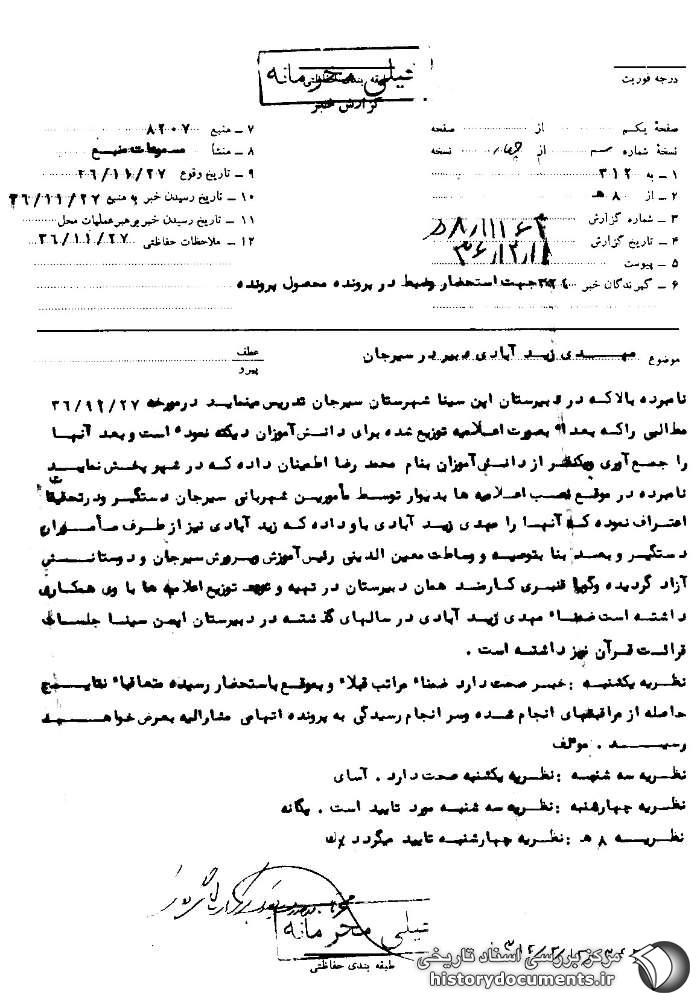 خیلی محرمانه
طبقه بندی حفاظتی
گزارش خبر
درجه فوریت
صفحهٔ یکم از صفحه
نسخهٔ شماره سه از چهار نسخه
۱ ـ به ۳۱۲
۲ ـ از ۸ هـ
۳ ـ شماره گزارش
۴ ـ تاریخ گزارش
۵ ـ پیوست
۶ ـ گیرندگان خبر جهت استحضار وضبط در پرونده محصول پرونده
۷ ـ منبع ۸۲۰۷
۸ ـ منشأ مسموعات منبع
۹ ـ تاریخ وقوع ۳۶/۱۱/۲۷
۱۰ ـ تاریخ رسیدن خبر به منبع ۳۶/۱۱/۲۷
۱۱ ـ تاریخ رسیدن خبر برهبر عملیات محل
۱۲ ـ ملاحظات حفاظتی ۳۶/۱۱/۲۷
موضوع مهـدی زیـد آبادی دبیر در سیرجان
عطف
پیرو
نامبرده بالاکه در دبیرستان ابن سینا شهرستان سیرجان تدریس مینماید درمورخه
مطالبی راکه بعدا" بصورت اعلامیه توزیع شده برای دانش‌آموزان دیکته نموده است و بعد آنها
را جمع‌آوری و بیکنفر از دانش‌آموزان بنام محمد رضا اطمینان داده که در شهر پخش نماید
نامبرده در موقع نصب اعلامیه ها بدیوار توسط مأمورین شهربانی سیرجان دستگیر ودرتحقیقات
اعتراف نموده که آنها را مهدی زید آبادی باو داده که زید آبادی نیز از طرف مأموران
دستگیر و بعـد بنا بتوصیه و وساطت معین الدینی رئیس‌آموزش وپرورش سیرجان و دوستانـش
آزاد گردیده وگویا قنبری کارمند همان دبیرستان در تهیه و توزیع اعلامیه ها با وی همکاری
داشته است ضمنا" مهدی زید آبادی در سالهای گذشته در دبیرستان ابـن سینـا جلسات
قرائت قرآن نیز داشته است .
نظریه یکشنبه : خبـر صحت دارد ضمنا" مراتب قبلا" و بموقع باستحضار رسیده متعاقبا" نتایـج
حاصله از مراقبتهای انجام شده وسر انجام رسیدگی به پرونده اتهامی مشارالیه بعرض خواهـد
رسیـد . موًلف
نظریه سه شنبه : نظریه یکشنبه صحت دارد . آسای
نظریه چهارشنبه : نظریه سه شنبه مورد تایید است . یگانه
نظریـه ۸ هـ : نظریه چهارشنبه تایید میگردد
خیلی محرمانه
طبقه بندی حفاظتی
مرکز بررسی اسناد تاریخی
historydocuments.ir